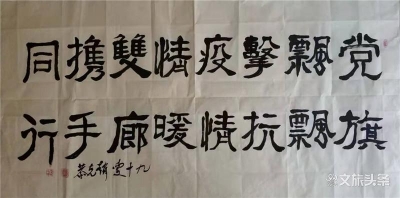 党旗
飄飄
擊抗
疫情
情暖
雙廊
携手
同行
九十叟
文旅头条